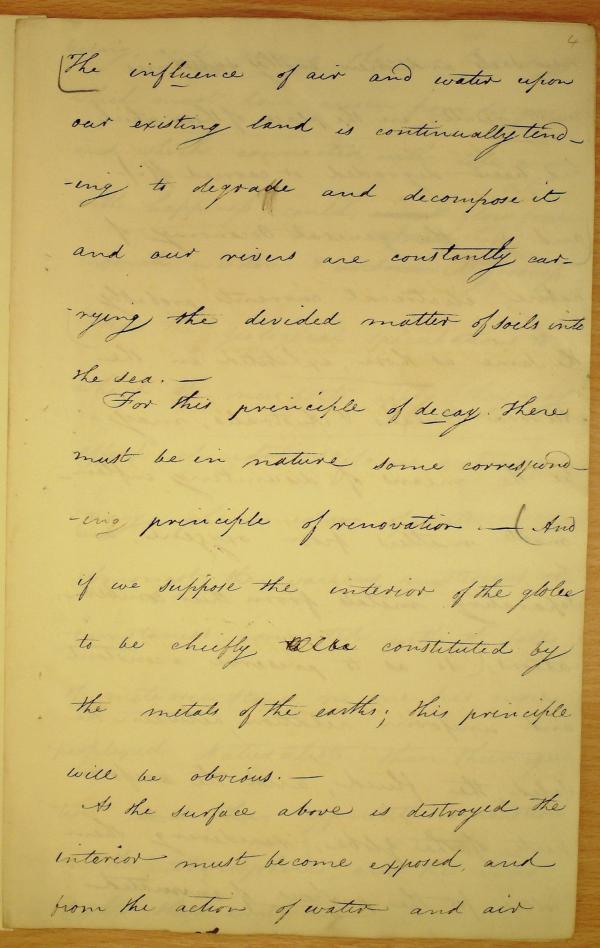 4
[The influence of air and water upon
our existing land is continually tend-
-ing to degrade and decompose it
and our rivers are constantly car-
-rying the divided matter of soils into
the sea. —
For this principle of decay. there
must be in nature some correspond-
-ing principle of renovation. — (And
if we suppose the interior of the globe
to be chiefly constituted by
the metals of the earths; this principle
will be obvious. —
As the surface above is destroyed the
interior must become exposed, and
from the action of water and air